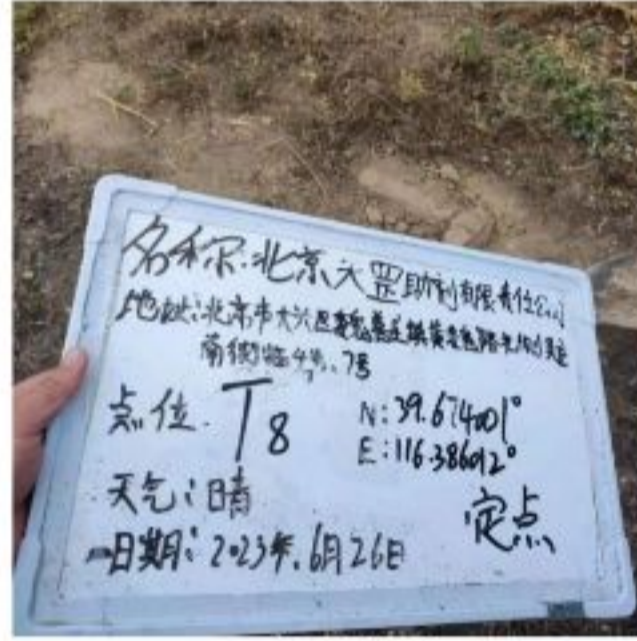 名称:北京天罡助剂有限责任公司
地址:北京市大兴区魏善庄镇黄魏路
南街临4号、7号
点位. T8
N:39.674001°
E:116.386012°
天气:晴
定点
日期:2023年.6月26日